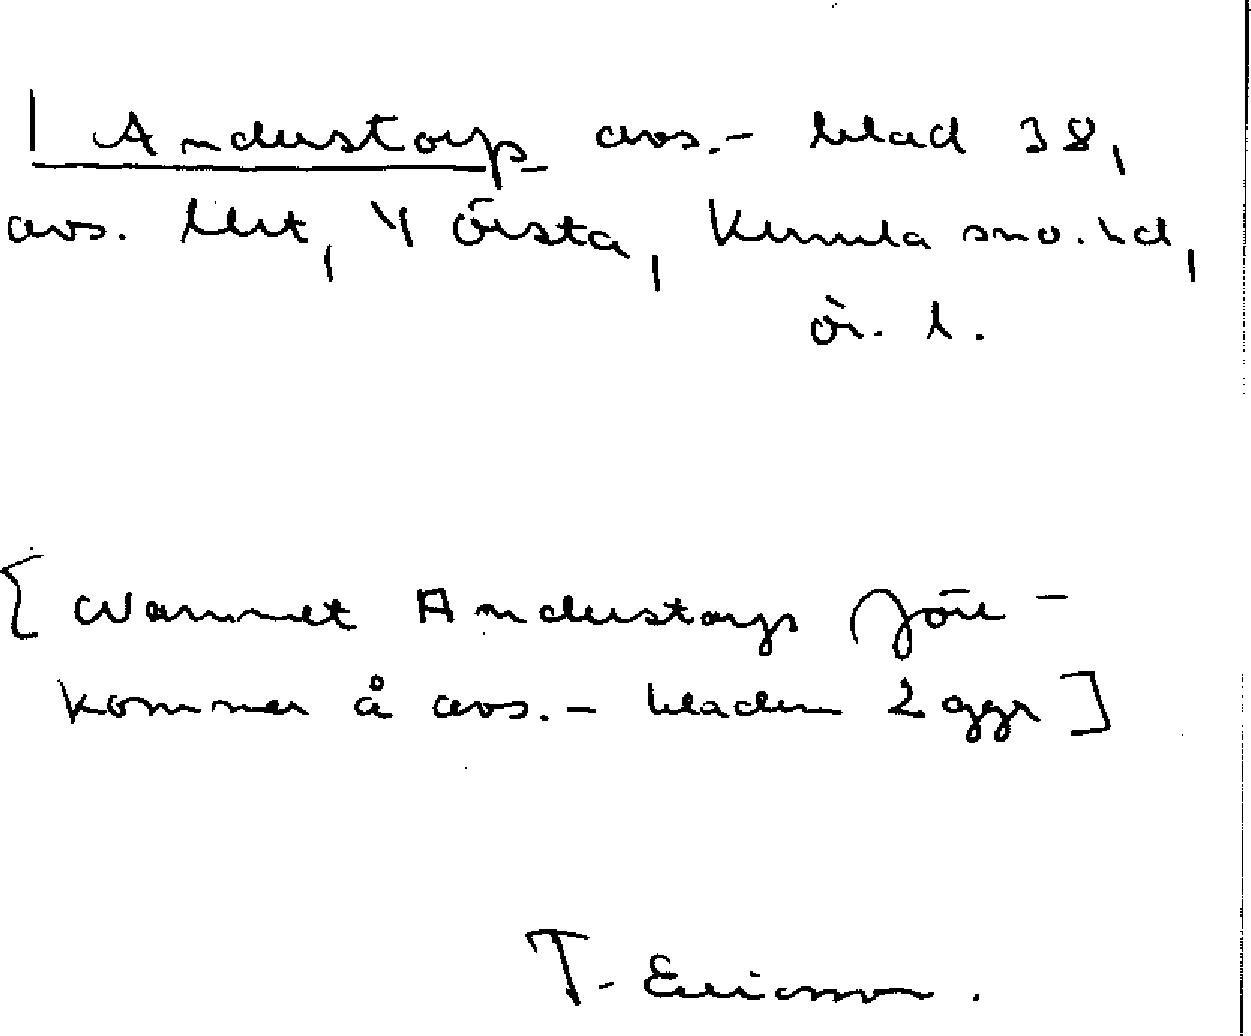 Anderstorp avs.- blad 38,
avs. lkt, Y Örsta, Kumla sno.hd,
ör. l.
[Namnet Anderstorp före-
kommer å avs.- bladen 2 ggr]
T. Ericsson.